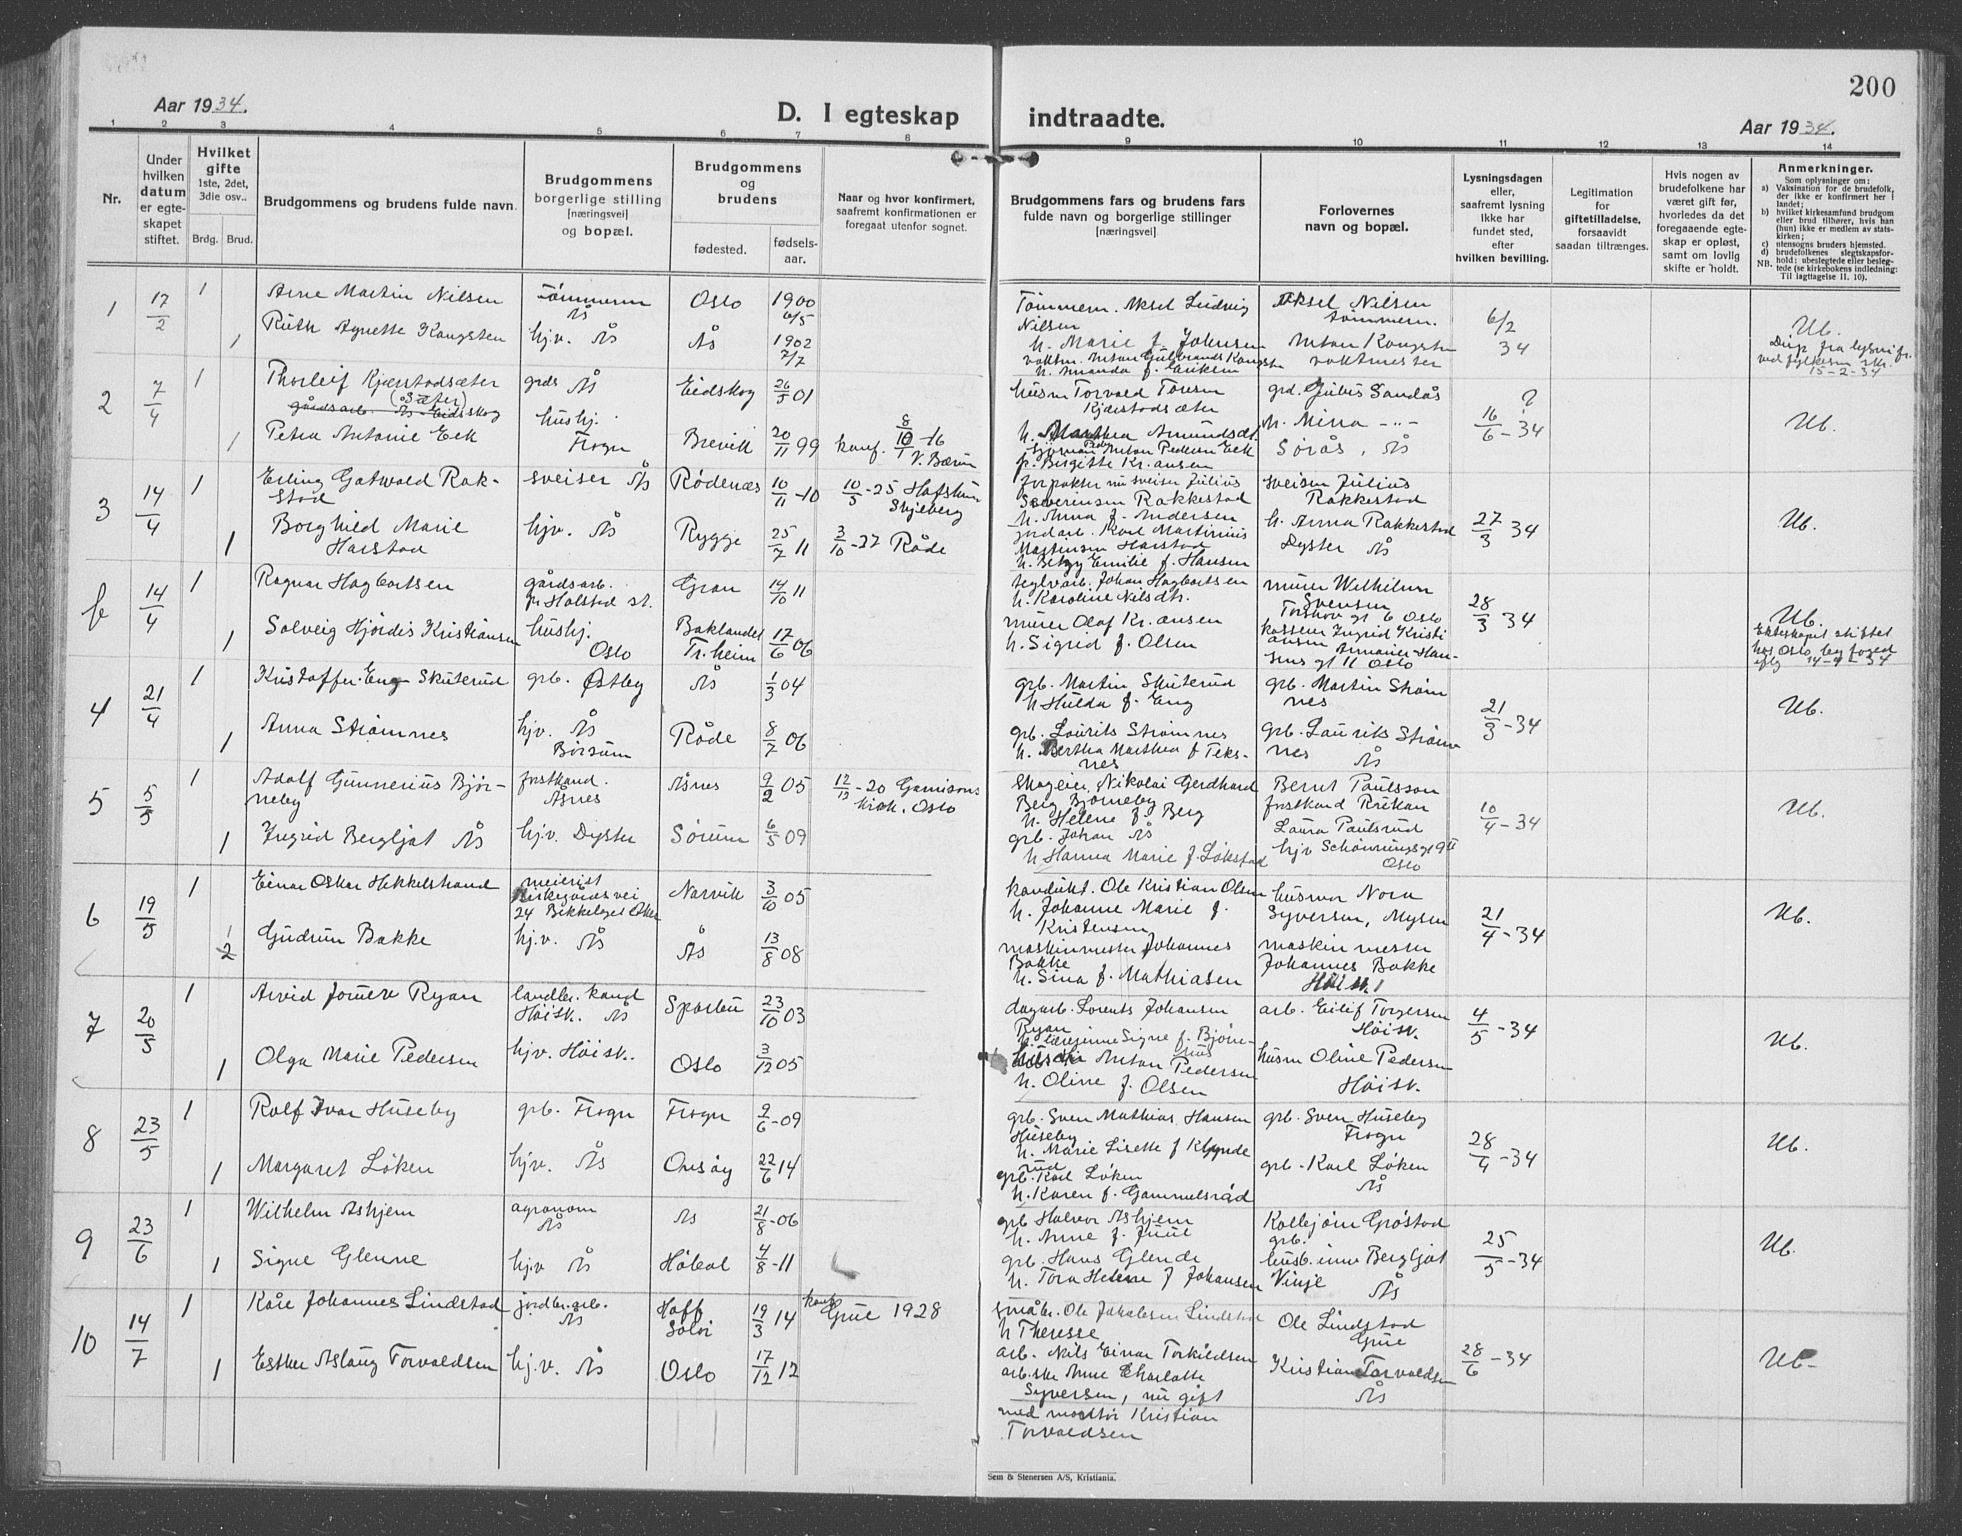 200
Aar 1934.
D. I egteskap indtraadte.
Aar 1934.
1 2 3 4 5 6 7 8 9 10 11 12 13 14
Nr.
Under hvilken datum er egteskapet stiftet.
Hvilket gifte 1ste, 2det, 3die osv..
Brdg. Brud.
Brudgommens og brudens fulde navn.
Brudgommens borgerlige stilling [næringsvei] og bopæl.
Brudgommens og brudens
fødested.
fødselsaar.
Naar og hvor konfirmert, saafremt konfirmationen er foregaat utenfor sognet.
Brudgommens fars og brudens fars fulde navn og borgerlige stillinger [næringsvei]
Forlovernes navn og bopæl.
Lysningsdagen eller, saafremt lysning ikke har fundet sted, efter hvilken bevilling.
Legitimation for giftetilladelse, forsaavidt saadan tiltrænges.
Hvis nogen av brudefolkene har været gift før, hvorledes da det foregaaende egteskap er opløst, samt om lovlig skifte er holdt.
Anmerkninger.
Som oplysninger om:
a) Vaksination for de brudefolk, der ikke er konfirmert her i landet;
b) hvilket kirkesamfund brudgom eller brud tilhører, hvis han (hun) ikke er medlem av statskirken;
c) utensogns bruders hjemsted.
d) brudefolkenes slegtskapsforhold: ubeslegtede eller beslegtede (se kirkebokens indledning:
NB. Til iagttagelse II, 10).
1 17/2 1 Arne Martin Nilsen Tømmerm Ås Oslo 1900 6/5
Tømmerm. Aksel Ludvig Nilsen
h. Marie f. Johnsen
Aksel Nilsen tømmerm.
6/2 34
Ub.
1 Ruth Agnette Kongsten hj.v. Ås Ås 1902 7/7
vaktm. Anton Gulbrands Kongsten
h. Amanda f. Eriksen
Anton Kongsten vaktmester
Disp fra lysni. fr. ved fylkesm skr. 15-2-34
2 7/4 1 Thorleif Kjærstadsæter (Sæter) grds Ås Eidskog 26/5 01
gårdsarb. Ås - Eidskog
husm Torvald Toresen Kjærstadsæter
h. Marthea Amundsdt.
grd. Julius Sandås ?
16/6 - 34
Ub.
1 Petra Antonie Eek hushj. Frogn Brevik 20/11 99 konf. 8/10 -16 V. Bærum
Anton Pedersen Eek
h. Birgitte Kr.ansen
h. Mina -..- Sørås, Ås
3 14/4 1 Erling Gotwald Rakstad sveiser Ås Rødenæs 10/11 -10 10/5 -25 Hafslund Skjeberg
forpakter nu sveiser Julius Severinsen Rakkestad
h. Anna f. Andersen
sveiser Julius Rakkestad
27/3 34
Ub.
1 Borghild Marie Harstad hjv. Ås Rygge 25/7 11 3/10 -27 Råde
jordarb. Karl Martinius Martensen Harstad
h. Betzy Emilie f. Hansen
h. Anna Rakkestad Dyster Ås
b 14/4 1 Ragnar Hagbartsen gårdsarb. Gran 14/10 11
teglvarb. Johan Hagbartsen
h. Karoline Nilsdtr.
murer Wilhelm Svensen Torshov gt 6 Oslo
28/3 34
Ub.
1 Solveig Hjørdis Kristiansen hushj. Oslo Baklandet Tr.heim 17/6 06
murer Olaf Kr.ansen
h. Sigrid f. Olsen
Ingrid Kristiansen Hansens gt 11 Oslo
Ekteskapet stiftet hos Oslo byfoged iflg 14-4-34
4 21/4 1 Kristoffer Eng Skuterud grb. Østby Ås 1/3 04
grb. Martin Skuterud
h Hulda f. Eng
grb. Martin Strømnes
21/3 - 34
Ub.
1 Anna Strømnes hjv. Ås Børsum Råde 8/7 06
grb. Laurits Strømnes
h. Bertha Marthea f Teksnes
grb. Lauriks Strømnes Ås
5 5/5 1 Adolf Gunnerius Bjørneby forstkand. Åsnes Åsnes 9/2 05 12/12 -20 Garnisons kirk. Oslo
Skogeier, Nikolai Gerdhard Berg Bjørneby
h. Helene f. Berg
Bernt Paulsson forstkand Rukan
10/4 - 34
Ub.
1 Ingrid Bergljot Ås hj.v. Dyster Sørum 6/5 09
grb. Johan Ås
h Hanna Marie f. Løkstad
Laura Paulsrud hjv Schønningsgt 9 II Oslo
6 19/5 1 Einar Oskar Hekkelstrand meierist 24 Bekkelaget Aker Narvik 3/10 05
kondukt. Ole Kristian Olsen
h. Johanne Marie f. Kristensen
husmor Nora Syversen, Mysen
21/4 - 34
Ub.
1 2 Gudrun Bakke hj.v. Ås Ås 13/8 08
maskinmester Johannes Bakke
h. Sina f. Mathiasen
maskinmester Johannes Bakke Høisk.
7 20/5 1 Arvid Jomer Ryan landbr. kand Høisk. Ås Sparbu 23/10 03
dagarb. Lorents Johansen Ryan
h. lærerinne Signe f. Bjørnnes
arb. Eilif Torgersen Høisk.
4/5 - 34
Ub.
1 Olga Marie Pedersen hjv. Høisk. Oslo 3/12 05
Anton Pedersen
h. Oline f. Olsen
husm Oline Pedersen Høisk.
8 23/5 1 Rolf Ivar Huseby grb. Frogn Frogn 2/6 -09
grb. Sven Mathias Hansen Huseby
h. Marie Lisette f Klynderud
grb. Sven Huseby Frogn
28/4 - 34
Ub.
1 Margaret Løken hjv. Ås Onsøy 22/6 14
grb. Karl Løken
h. Karen f. Gammelsrød
grb. Karl Løken Ås
9 23/6 1 Wilhelm Askjem agronom Ås Ås 21/8 -06
grb Halvor Askjem
h. Anne f. Juul
Kolbjørn Grøstad grb.
25/5 - 34
Ub.
1 Signe Glenne hjv Ås Hobøl 4/8 -11
grb. Hans Glende
h. Tora Helene f Johansen
husb.inne Bergljot Vinje Ås
10 14/7 1 Kåre Johannes Lindstad jordbr.arb. Ås Hoff Solør 19/3 14 konf. Grue 1928
småbr. Ole Jakobsen Lindstad
h Therese
Ole Lindstad Grue
28/6 - 34
Ub-
1 Esther Aslaug Torvaldsen hj.v. Ås Oslo 17/12 12
arb. Nils Einar Torkildsen
arb.ske Anne Charlotte Syversen, nu gift med Kristian Torvaldsen
Kristian Torvaldsen Ås
Sem & Stenersen A/S, Kristiania.